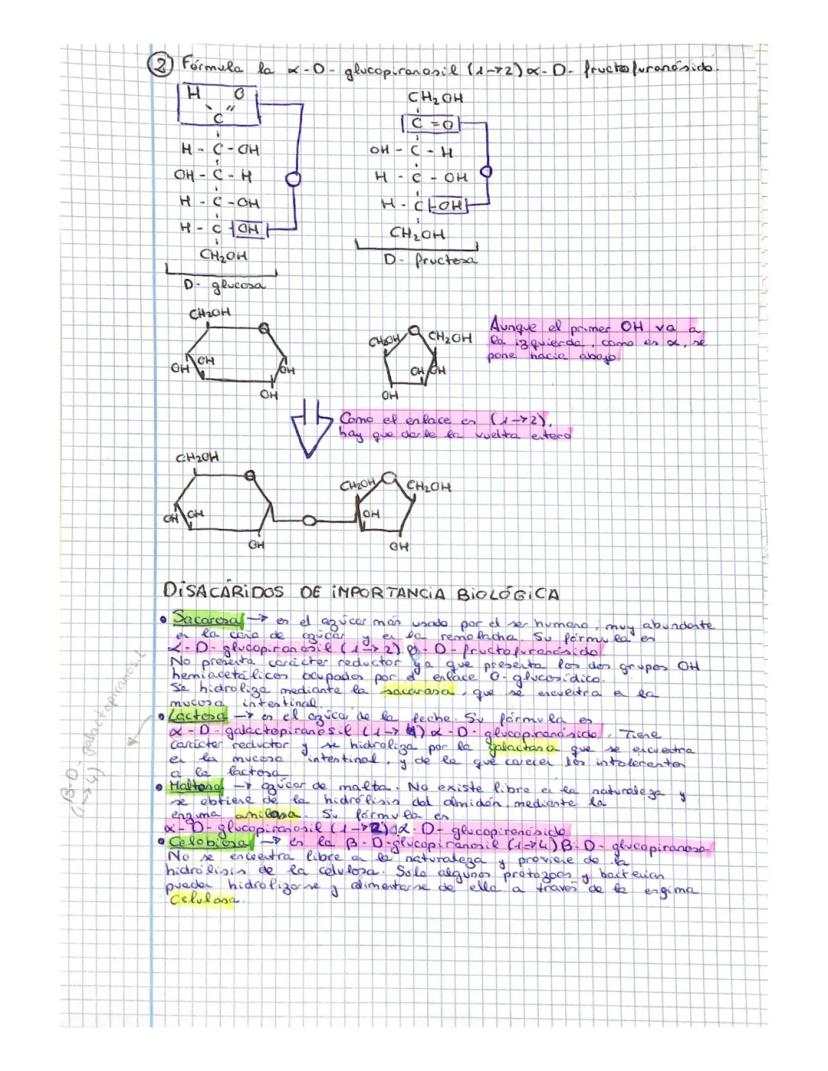 ② Fórmula la α-D-glucopiranosil (1→2) α-D-fructofuranósido.
H O
C
H - C - OH
OH - C - H
H - C - OH
H - C - OH
CH₂OH
D-glucosa
CH₂OH
C = O
OH - C - H
H - C - OH
H - C - OH
CH₂OH
D-fructosa
CH₂OH
O
OH
OH
OH
OH
CH₂OH
O
CH₂OH
OH
OH
OH
Aunque el primer OH va a
la izquierda, como es α, se
pone hacia abajo
Como el enlace es (1→2),
hay que darle la vuelta entero
CH₂OH
O
OH
OH
OH
O
CH₂OH
O
CH₂OH
OH
OH
DiSACÁRiDOS DE iMPORTANCiA BiOLÓGiCA
• Sacarosa → es el azúcar más usado por el ser humano, muy abundante
en la caña de azúcar y en la remolacha. Su fórmula es
α-D-glucopiranosil (1→2) β-D-fructofuranósido
No presenta carácter reductor ya que presenta los dos grupos OH
hemiacetálicos ocupados por el enlace O-glucosídico.
Se hidroliza mediante la sacarasa, que se encuentra en la
mucosa intestinal.
• Lactosa → es el azúcar de la leche. Su fórmula es
α-D-galactopiranosil (1→4) α-D-glucopiranósido. Tiene
carácter reductor y se hidroliza por la galactasa que se encuentra
en la mucosa intestinal, y de la que carecen los intolerantes
a la lactosa
β-D-galactopiranosil
(1→4)
• Maltosa → azúcar de malta. No existe libre en la naturaleza y
se obtiene de la hidrólisis del almidón, mediante la
enzima amilasa. Su fórmula es
α-D-glucopiranosil (1→2) α-D-glucopiranósido
• Celobiosa → es la β-D-glucopiranosil (1→4) β-D-glucopiranosa
No se encuentra libre en la naturaleza y proviene de la
hidrólisis de la celulosa. Solo algunos protozoos y bacterias
pueden hidrolizarse y alimentarse de ella a través de la enzima
Celulasa.